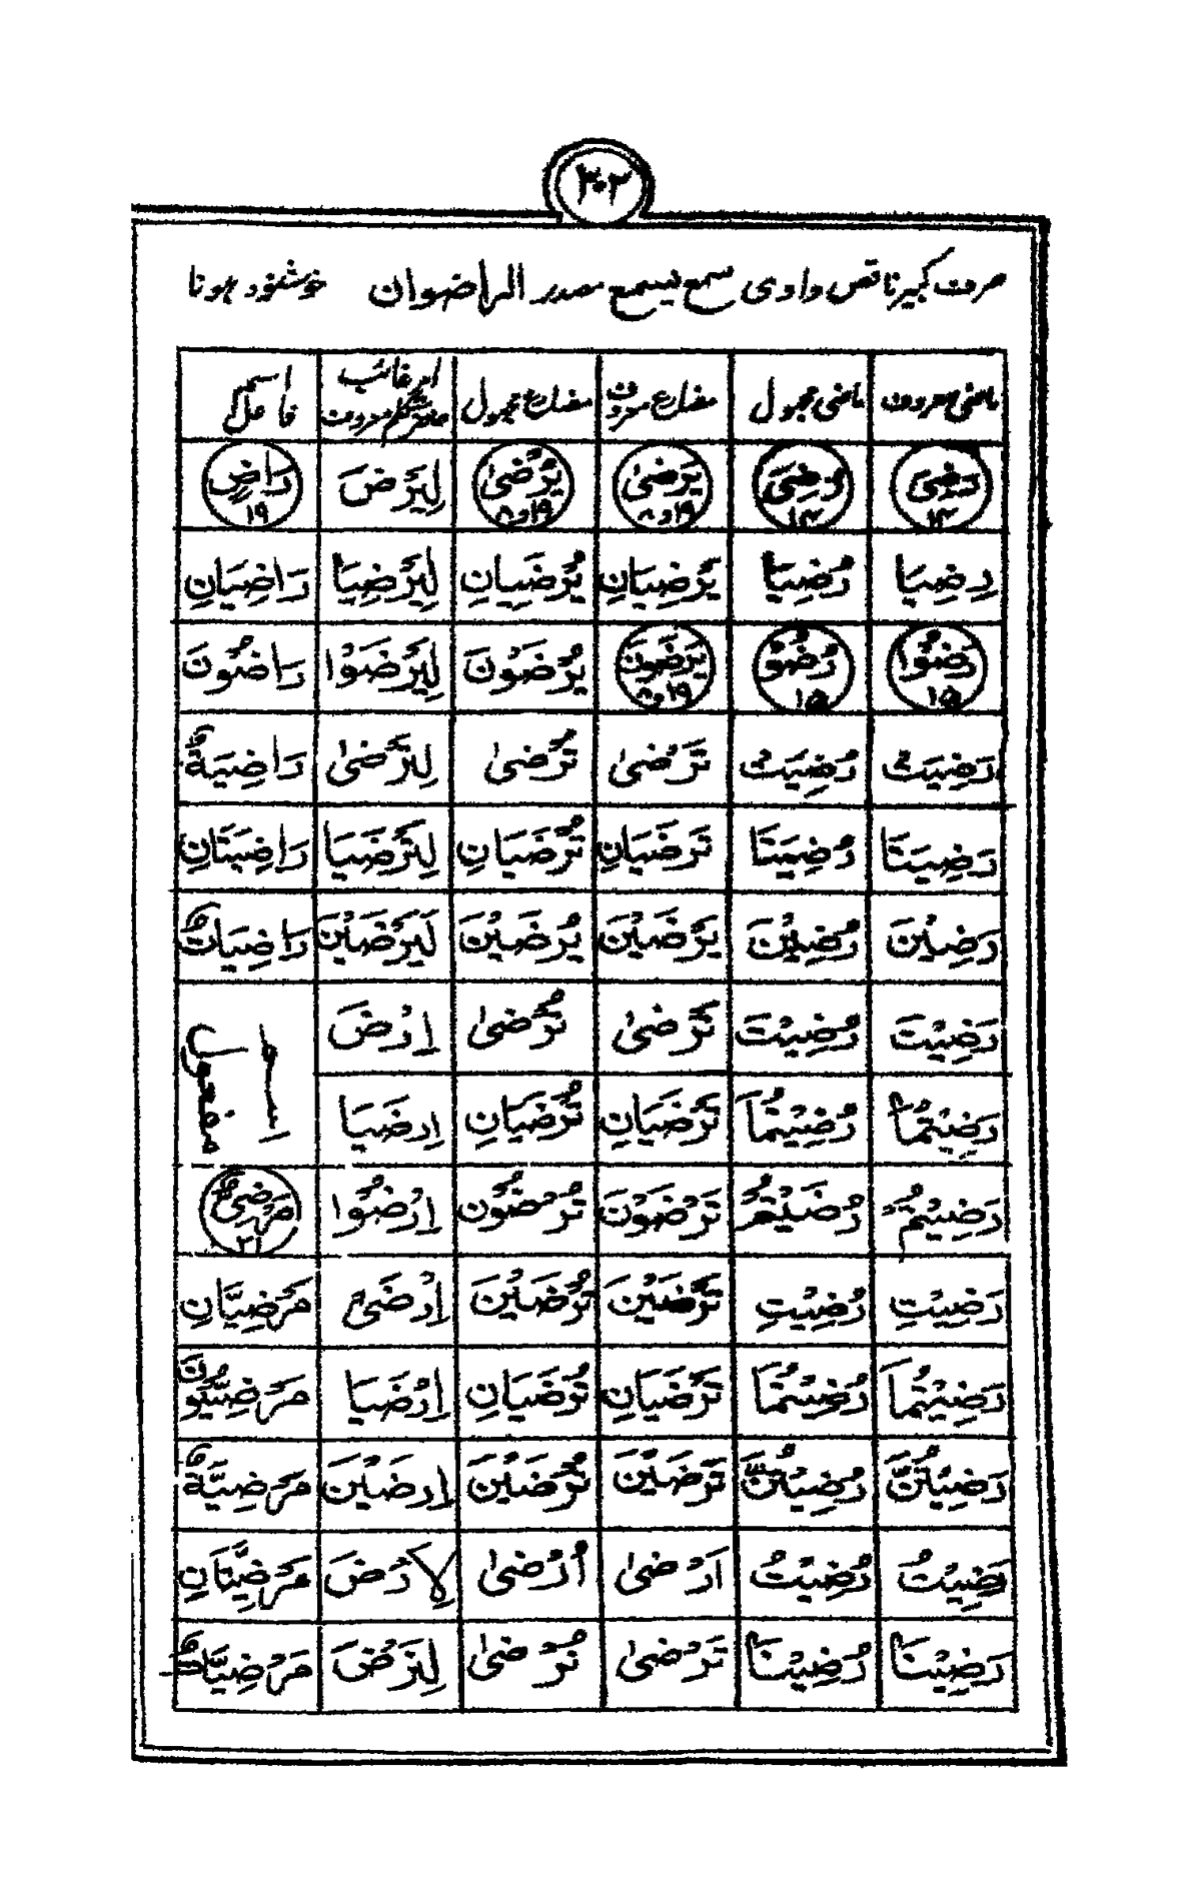 ۳۰۲
صرف کبیر ناقص واوی سمع یسمع مصدر الراضوان خوشنود ہونا
ماضی معروف ماضی مجہول مضارع معروف مضارع مجہول امر غائب حاضر متکلم معروف اسم فاعل
رَضِیَ ۱۴ رُضِیَ ۱۴ یَرْضٰی ۱۹و۸ یُرْضٰی ۱۹و۸ لِیَرْضَ رَاضٍ ۱۹
رَضِیَا رُضِیَا یَرْضِیَانِ یُرْضَیَانِ لِیَرْضِیَا رَاضِیَانِ
رَضُوْا ۱۵ رُضُوْا ۱۵ یَرْضَوْنَ ۱۹و۸ یُرْضَوْنَ لِیَرْضَوْا رَاضُوْنَ
رَضِیَتْ رُضِیَتْ تَرْضٰی تُرْضٰی لِتَرْضٰی رَاضِیَةٌ
رَضِیَتَا رُضِیَتَا تَرْضَیَانِ تُرْضَیَانِ لِتَرْضَیَا رَاضِیَتَانِ
رَضِیْنَ رُضِیْنَ یَرْضَیْنَ یُرْضَیْنَ لَیَرْضَیْنَ رَاضِیَاتٌ
رَضِیْتَ رُضِیْتَ تَرْضٰی تُرْضٰی اِرْضَ اسم مفعول
رَضِیْتُمَا رُضِیْتُمَا تَرْضَیَانِ تُرْضَیَانِ اِرضَیَا
رَضِیْتُمْ رُضَیْتُمْ تَرْضَوْنَ تُرْضَوْنَ اِرْضُوْا مَرْضِیٌّ ۲۱
رَضِیْتِ رُضِیْتِ تَرْضَیْنَ تُرْضَیْنَ اِرْضَیْ مَرْضِیَّانِ
رَضِیْتُمَا رُضِیْتُمَا تَرْضَیَانِ تُرْضَیَانِ اِرْضَیَا مَرْضِیُّوْنَ
رَضِیْتُنَّ رُضِیْتُنَّ تَرْضَیْنَ تُرْضَیْنَ اِرضَیْنَ مَرْضِیَّةٌ
رَضِیْتُ رُضِیْتُ اَرْضٰی اُرْضٰی لِاَرْضَ مَرْضِیَّتَانِ
رَضِیْنَا رُضِیْنَا نَرْضٰی نُرْضٰی لِنَرْضَ مَرْضِیَّاتٌ